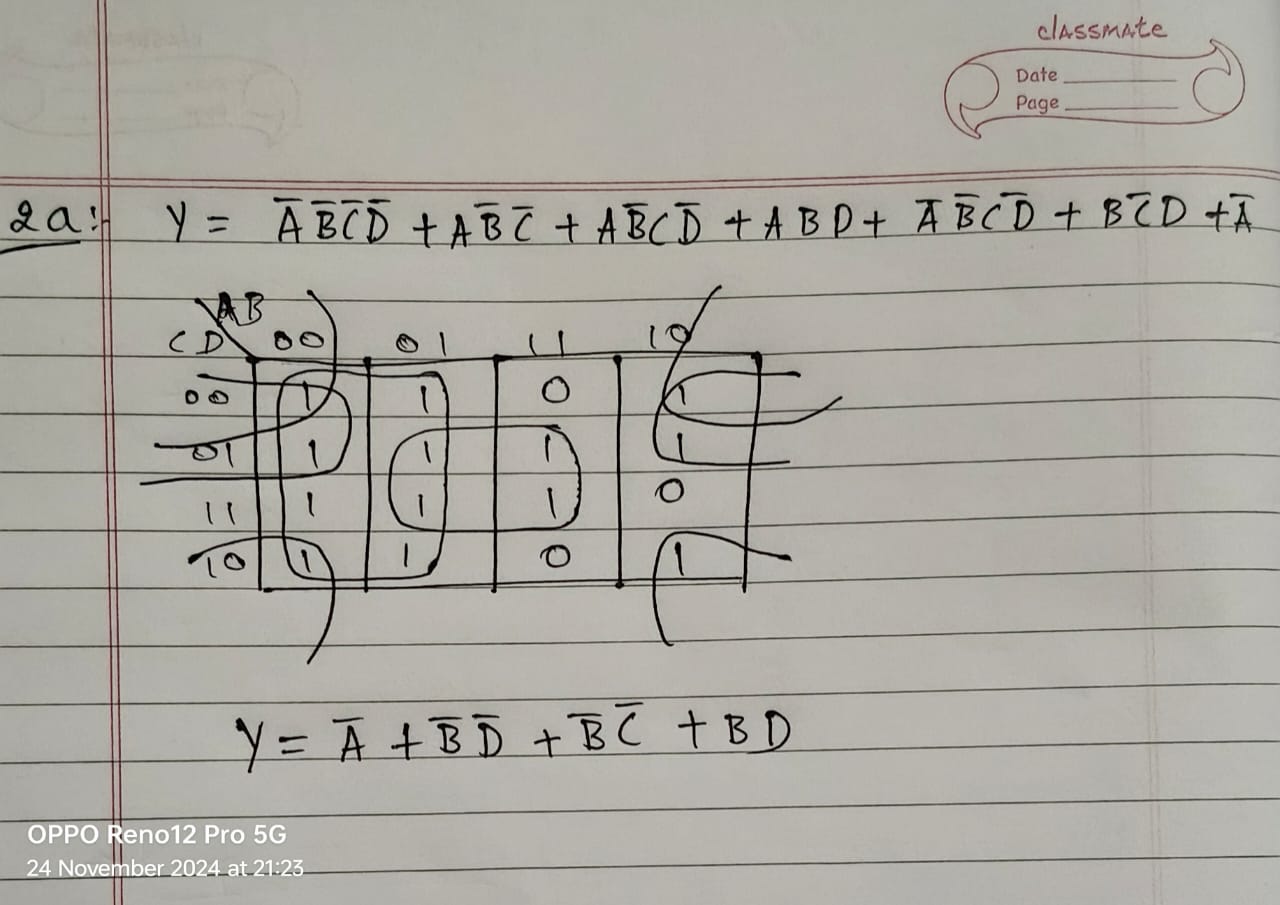 classmate
Date
Page
2a:- Y = A̅ B̅ C̅ D̅ + A B̅ C̅ + A B̅ C D̅ + A B D + A̅ B̅ C D̅ + B C̅ D + A̅
AB
CD 00 01 11 10
00 1 1 0 1
01 1 1 1 1
11 1 1 1 0
10 1 1 0 1
Y = A̅ + B̅ D̅ + B̅ C̅ + B D
OPPO Reno12 Pro 5G
24 November 2024 at 21:23